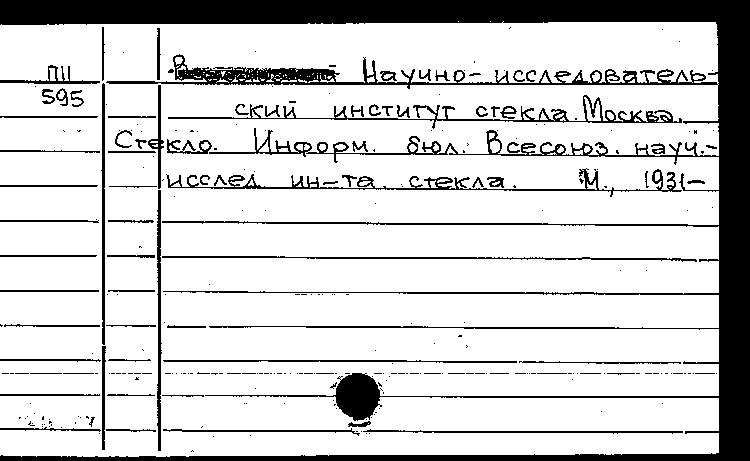 ПII
595
Научно-исследователь-
ский институт стекла. Москва.
Стекло. Информ. бюл. Всесоюз. науч.-
исслед. ин-та стекла. М., 1931-